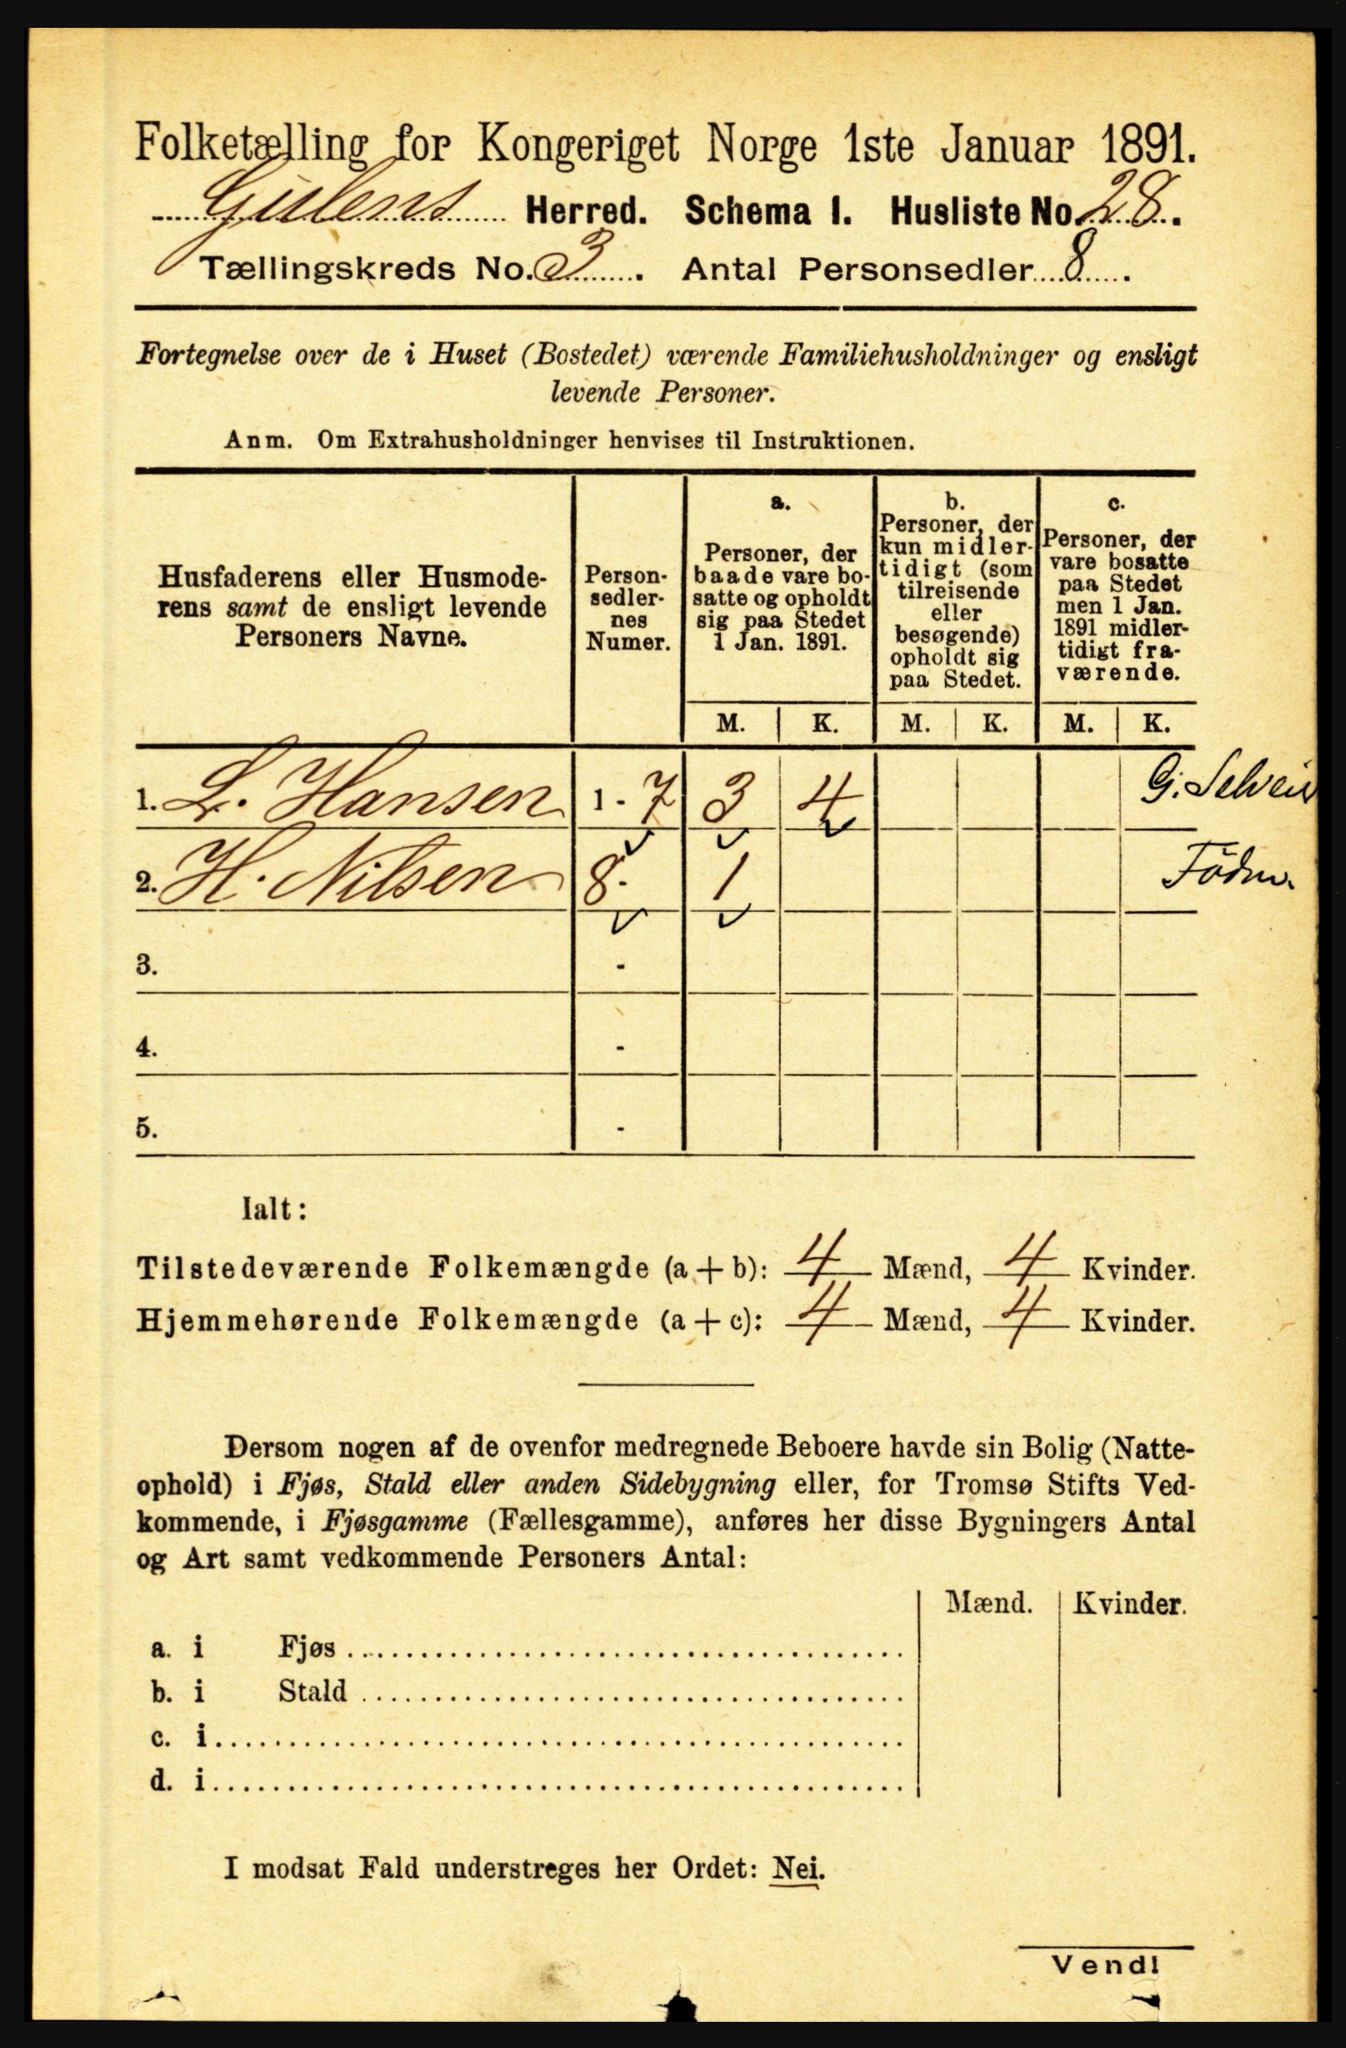 Folketælling for Kongeriget Norge 1ste Januar 1891.
Gulens Herred. Schema I. Husliste No. 28.
Tællingskreds No. 3. Antal Personsedler 8.
Fortegnelse over de i Huset (Bostedet) værende Familiehusholdninger og ensligt
levende Personer.
Anm. Om Extrahusholdninger henvises til Instruktionen.
Husfaderens eller Husmode-
rens samt de ensligt levende
Personers Navne.
Person-
sedler-
nes
Numer.
a.
Personer, der
baade vare bo-
satte og opholdt
sig paa Stedet
1 Jan. 1891.
b.
Personer, der
kun midler-
tidigt (som
tilreisende
eller
besøgende)
opholdt sig
paa Stedet.
c.
Personer, der
vare bosatte
paa Stedet
men 1 Jan.
1891 midler-
tidigt fra-
værende.
M. K. M. K. M. K.
1. L. Hansen 1 - 7 3 4 G. Selvei
2. H. Nilsen 8 - 1 Föder.
3. -
4. -
5. -
Ialt:
Tilstedeværende Folkemængde (a + b): 4 Mænd, 4 Kvinder.
Hjemmehørende Folkemængde (a + c): 4 Mænd, 4 Kvinder.
Dersom nogen af de ovenfor medregnede Beboere havde sin Bolig (Natte-
ophold) i Fjøs, Stald eller anden Sidebygning eller, for Tromsø Stifts Ved-
kommende, i Fjøsgamme (Fællesgamme), anføres her disse Bygningers Antal
og Art samt vedkommende Personers Antal:
Mænd. Kvinder.
a. i Fjøs
b. i Stald
c. i
d. i
I modsat Fald understreges her Ordet: Nei.
Vend!